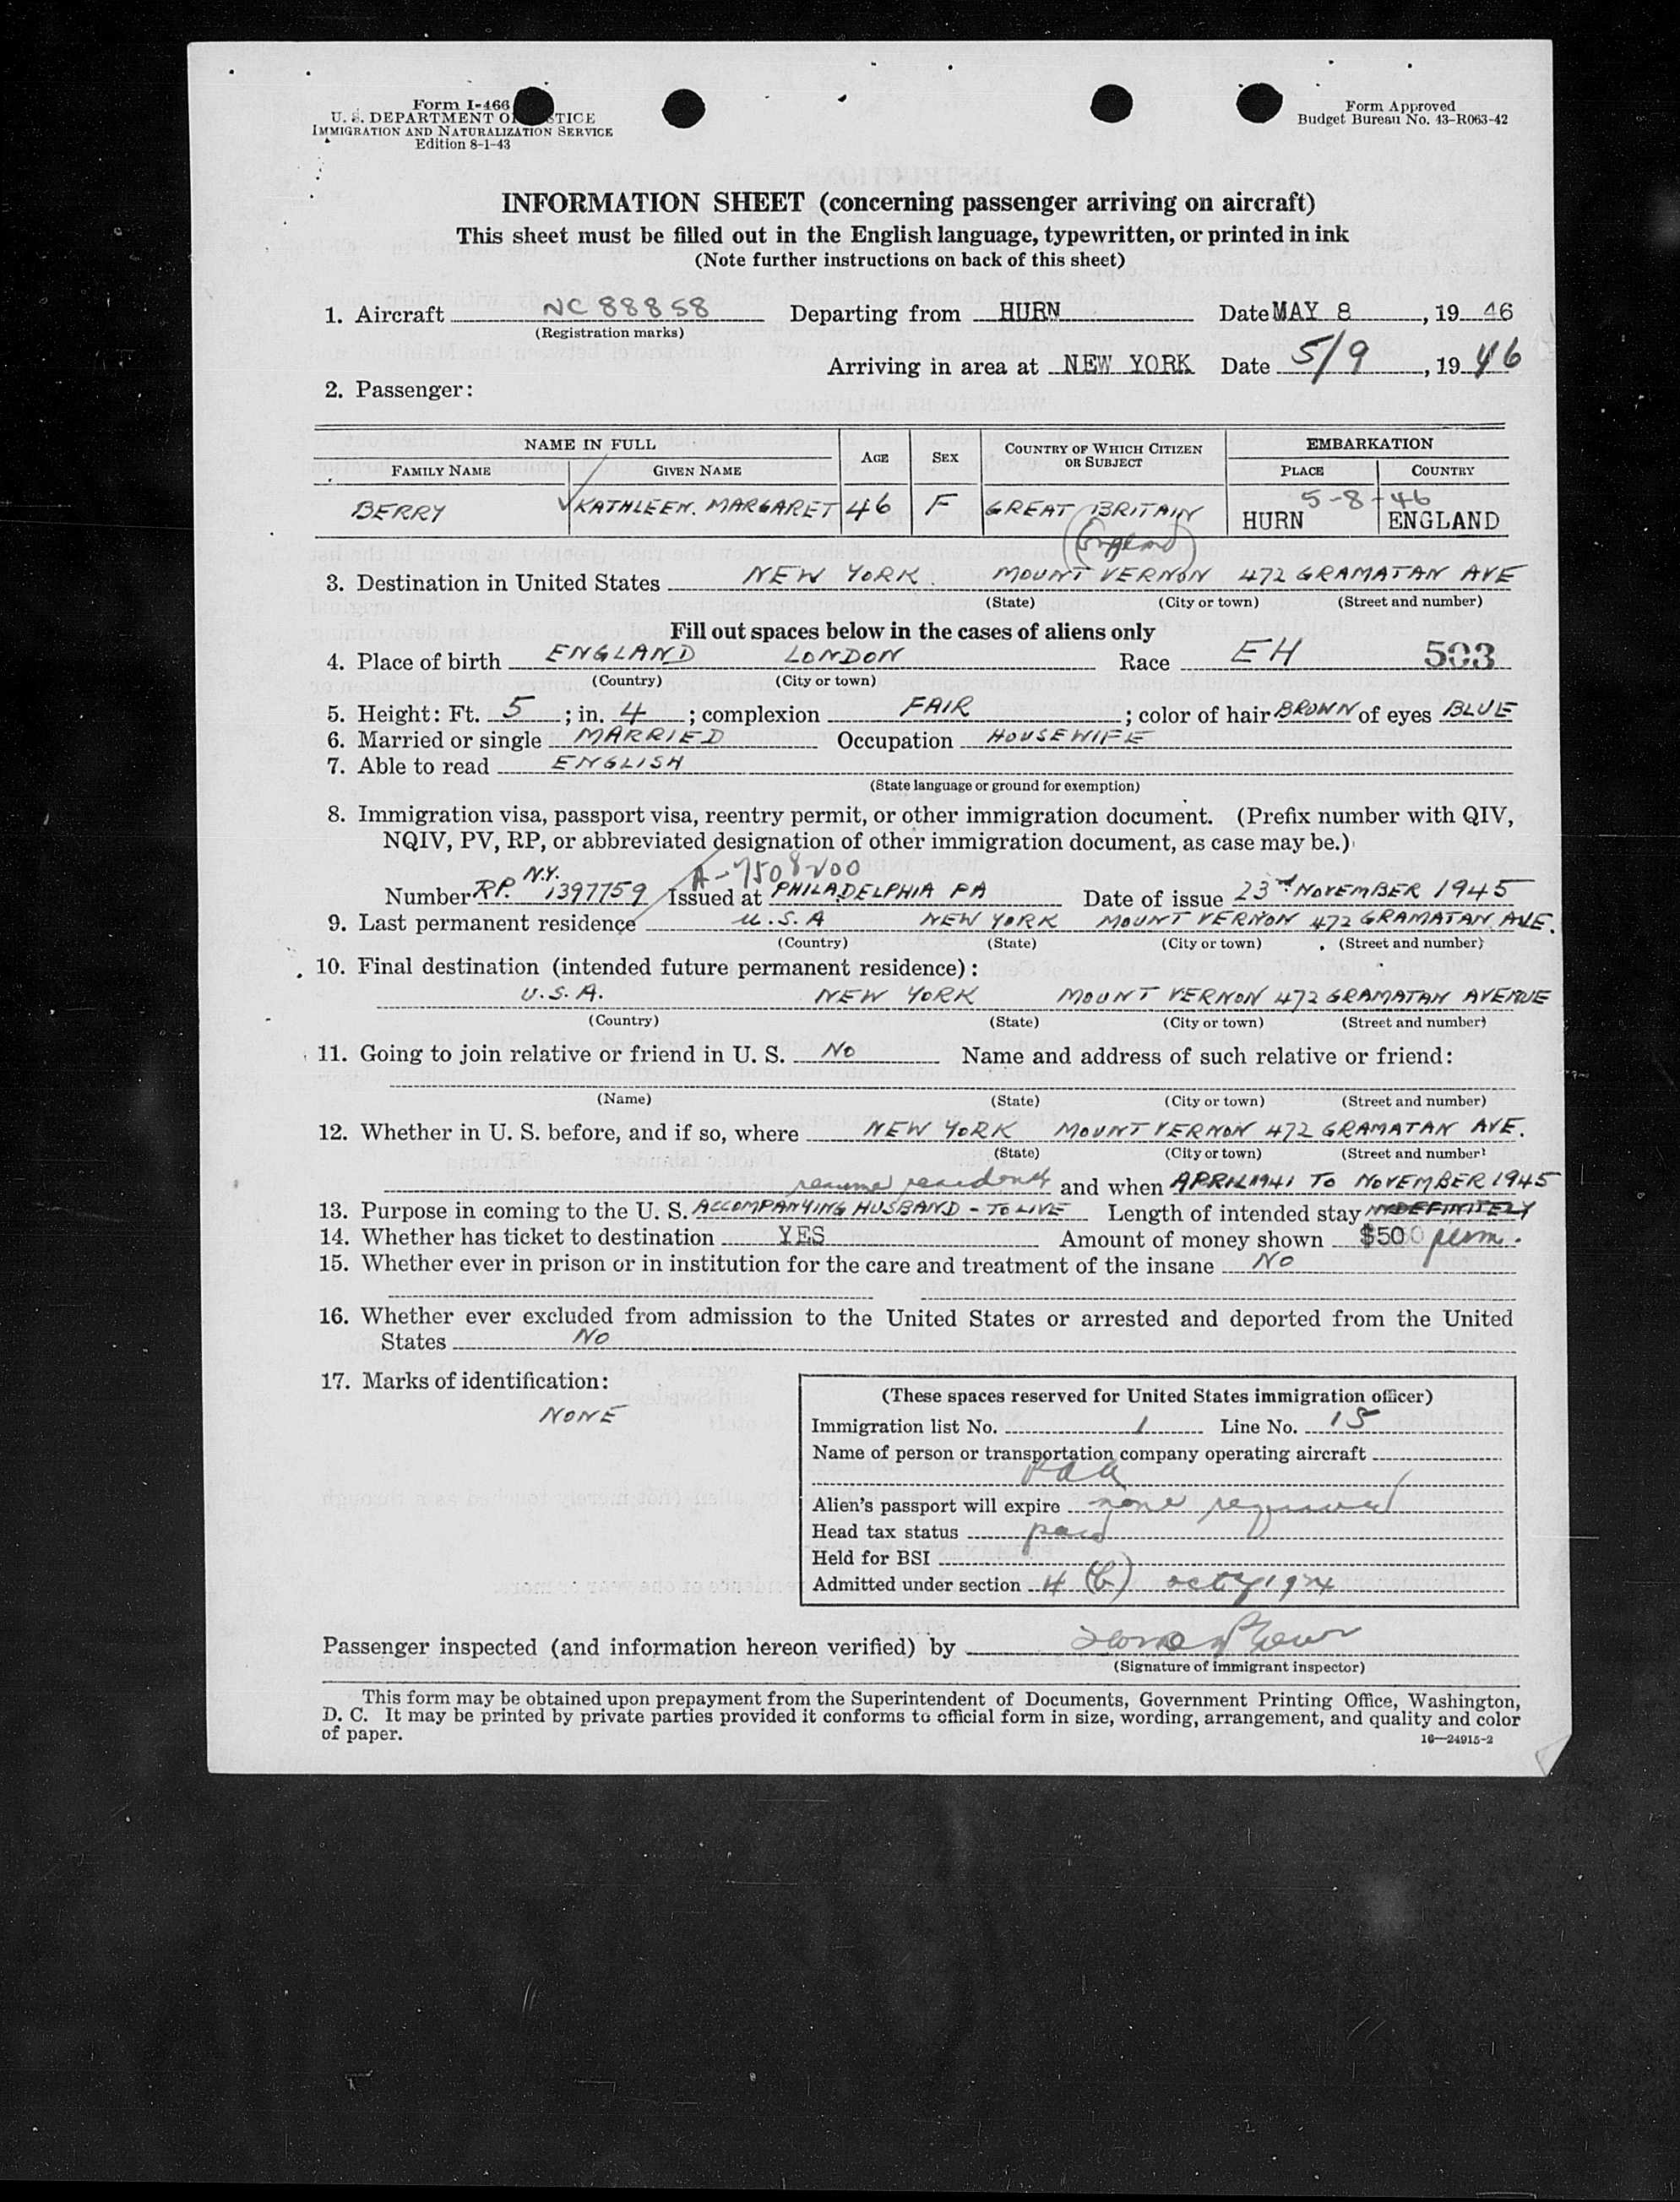 Form I-466
U. S. DEPARTMENT OF JUSTICE
IMMIGRATION AND NATURALIZATION SERVICE
Edition 8-1-43
Form Approved
Budget Bureau No. 43-R063-42
INFORMATION SHEET (concerning passenger arriving on aircraft)
This sheet must be filled out in the English language, typewritten, or printed in ink
(Note further instructions on back of this sheet)
1. Aircraft NC 88858 Departing from HURN Date MAY 8, 1946
(Registration marks)
Arriving in area at NEW YORK Date 5/9, 1946
2. Passenger:
NAME IN FULL AGE SEX COUNTRY OF WHICH CITIZEN OR SUBJECT EMBARKATION
FAMILY NAME GIVEN NAME PLACE COUNTRY
5-8-46
BERRY KATHLEEN. MARGARET 46 F GREAT BRITAIN HURN ENGLAND
(England)
3. Destination in United States NEW YORK. MOUNT VERNON 472 GRAMATAN AVE
(State) (City or town) (Street and number)
Fill out spaces below in the cases of aliens only
4. Place of birth ENGLAND LONDON Race EH 503
(Country) (City or town)
5. Height: Ft. 5; in. 4; complexion FAIR; color of hair BROWN of eyes BLUE
6. Married or single MARRIED Occupation HOUSEWIFE
7. Able to read ENGLISH
(State language or ground for exemption)
8. Immigration visa, passport visa, reentry permit, or other immigration document. (Prefix number with QIV,
NQIV, PV, RP, or abbreviated designation of other immigration document, as case may be.)
N.Y. A-7508200
Number RP. 1397759 Issued at PHILADELPHIA PA Date of issue 23rd NOVEMBER 1945
9. Last permanent residence U.S.A NEW YORK MOUNT VERNON 472 GRAMATAN AVE.
(Country) (State) (City or town) (Street and number)
10. Final destination (intended future permanent residence):
U.S.A. NEW YORK MOUNT VERNON 472 GRAMATAN AVENUE
(Country) (State) (City or town) (Street and number)
11. Going to join relative or friend in U. S. NO Name and address of such relative or friend:
(Name) (State) (City or town) (Street and number)
12. Whether in U. S. before, and if so, where NEW YORK MOUNT VERNON 472 GRAMATAN AVE.
(State) (City or town) (Street and number)
resume residence and when APRIL 1941 TO NOVEMBER 1945
13. Purpose in coming to the U. S. ACCOMPANYING HUSBAND - TO LIVE Length of intended stay INDEFINITELY
14. Whether has ticket to destination YES Amount of money shown $500 perm.
15. Whether ever in prison or in institution for the care and treatment of the insane NO
16. Whether ever excluded from admission to the United States or arrested and deported from the United
States NO
17. Marks of identification:
NONE
(These spaces reserved for United States immigration officer)
Immigration list No. 1 Line No. 15
Name of person or transportation company operating aircraft
PAA
Alien's passport will expire none required
Head tax status paid
Held for BSI
Admitted under section 4 (b) act 1924
Passenger inspected (and information hereon verified) by
(Signature of immigrant inspector)
This form may be obtained upon prepayment from the Superintendent of Documents, Government Printing Office, Washington,
D. C. It may be printed by private parties provided it conforms to official form in size, wording, arrangement, and quality and color
of paper.
16—24915-2